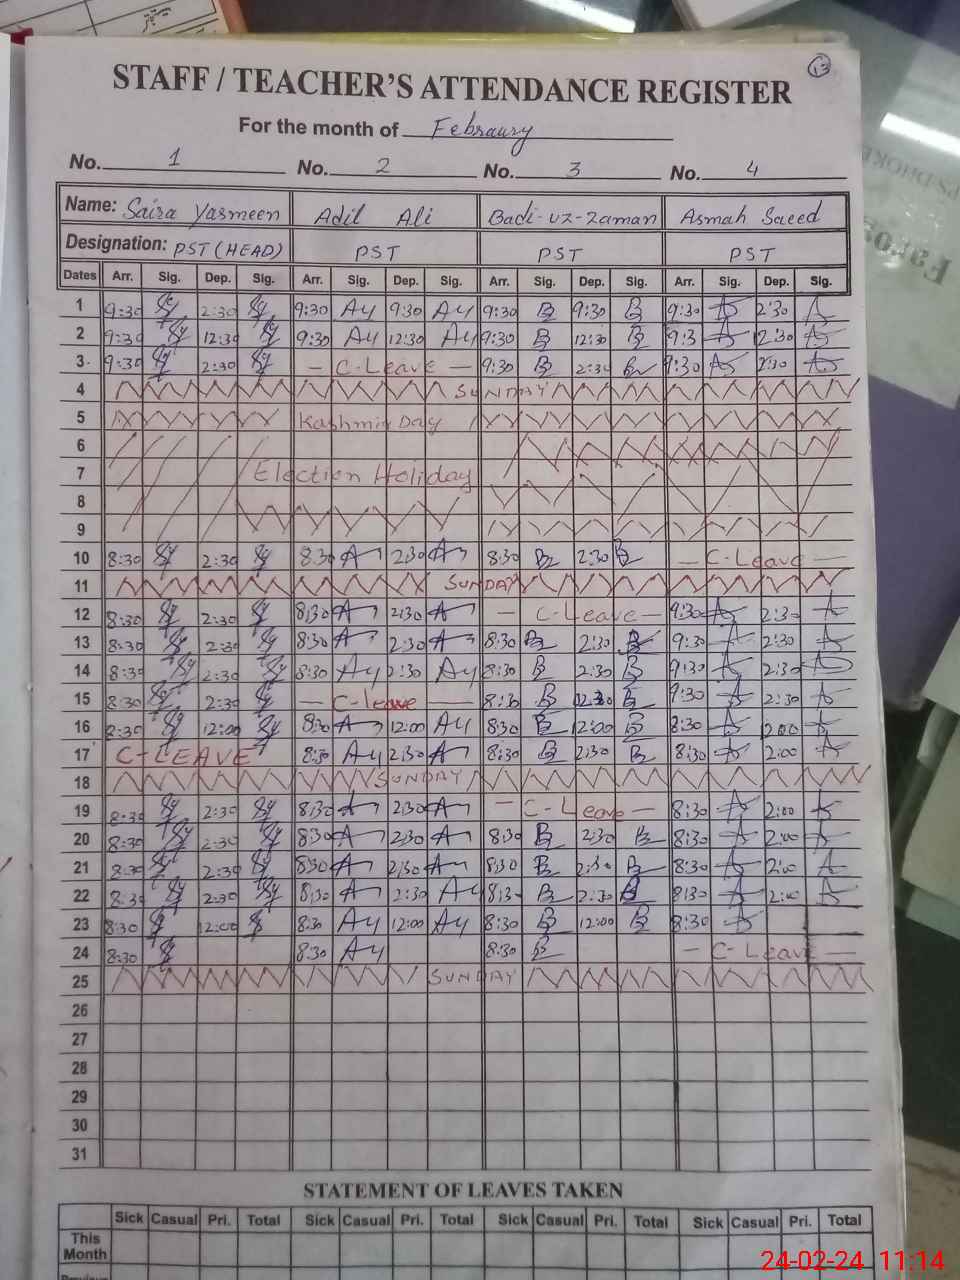 13
STAFF / TEACHER'S ATTENDANCE REGISTER
For the month of Febraury
No. 1 No. 2 No. 3 No. 4
Name: Saira Yasmeen Adil Ali Badi-uz-Zaman Asmah Saeed
Designation: PST (HEAD) PST PST PST
Dates Arr. Sig. Dep. Sig. Arr. Sig. Dep. Sig. Arr. Sig. Dep. Sig. Arr. Sig. Dep. Sig.
1 9:30 Sy 2:30 Sy 9:30 Ay 9:30 Ay 9:30 B 9:30 B 9:30 A 2:30 A
2 9:30 Sy 12:30 Sy 9:30 Ay 12:30 Ay 9:30 B 12:30 B 9:3 A 12:30 A
3 9:30 Sy 2:30 Sy - C-Leave - 9:30 B 2:30 B 9:30 A 2:30 A
4 SUNDAY
5 Kashmir Day
6
7 Election Holiday
8
9
10 8:30 Sy 2:30 Sy 8:30 A 2:30 A 8:30 B 2:30 B - C-Leave -
11 SUNDAY
12 8:30 Sy 2:30 Sy 8:30 A 2:30 A - C-Leave - 9:30 A 2:30 A
13 8:30 Sy 2:30 Sy 8:30 A 2:30 A 8:30 B 2:30 B 9:30 A 2:30 A
14 8:30 Sy 2:30 Sy 8:30 Ay 2:30 Ay 8:30 B 2:30 B 9:30 A 2:30 A
15 8:30 Sy 2:30 Sy - C-Leave - 8:30 B B 9:30 A 2:30 A
16 8:30 Sy 12:00 Sy 8:30 A 12:00 Ay 8:30 B 12:00 B 8:30 A A
17 C-LEAVE 8:30 Ay 2:30 A 8:30 B 2:30 B 8:30 A 2:00 A
18 SUNDAY
19 8:30 Sy 2:30 Sy 8:30 A 2:30 A - C-Leave - 8:30 A 2:00 A
20 8:30 Sy 2:30 Sy 8:30 A 2:30 A 8:30 B 2:30 B 8:30 A 2:00 A
21 8:30 Sy 2:30 Sy 8:30 A 2:30 A 8:30 B 2:30 B 8:30 A 2:00 A
22 8:30 Sy 2:30 Sy 8:30 A 2:30 Ay 8:30 B 2:30 B 8:30 A 2:00 A
23 8:30 Sy 12:00 Sy 8:30 Ay 12:00 Ay 8:30 B 12:00 B 8:30 A
24 8:30 Sy 8:30 Ay 8:30 B - C-Leave -
25 SUNDAY
26
27
28
29
30
31
STATEMENT OF LEAVES TAKEN
Sick Casual Pri. Total Sick Casual Pri. Total Sick Casual Pri. Total Sick Casual Pri. Total
This Month
24-02-24 11:14